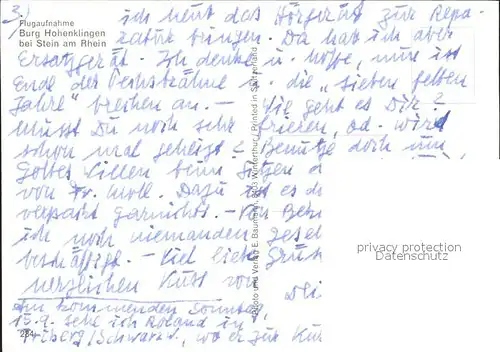 3.)
Flugaufnahme
Burg Hohenklingen
bei Stein am Rhein
ich heut das Hörgerät zur Repa-
ratur bringen. Da hab ich aber
Ersatzgerät. Ich denke u. hoffe, nun ist
Ende der Pechsträhne die "sieben fetten
Jahre" brechen an. — Wie geht es Dir?
Musst Du noch sehr frieren, od. wird
schon mal geheizt? Benutze doch um
Gottes Willen beim Sitzen d
von Fr. Moll. Dazu ist es da
verpackt garnichts. — Von
ich noch niemanden
beschäftigt. — Viel liebe Grüß
herzlichen Kuss von
Am kommenden Sonntag,
15.9. sehe ich Roland in
Triberg/Schwarzw., wo er zur Kur
284
Photo und Verlag E. Baumann, Winterthur / Printed in Switzerland
privacy protection
Datenschutz